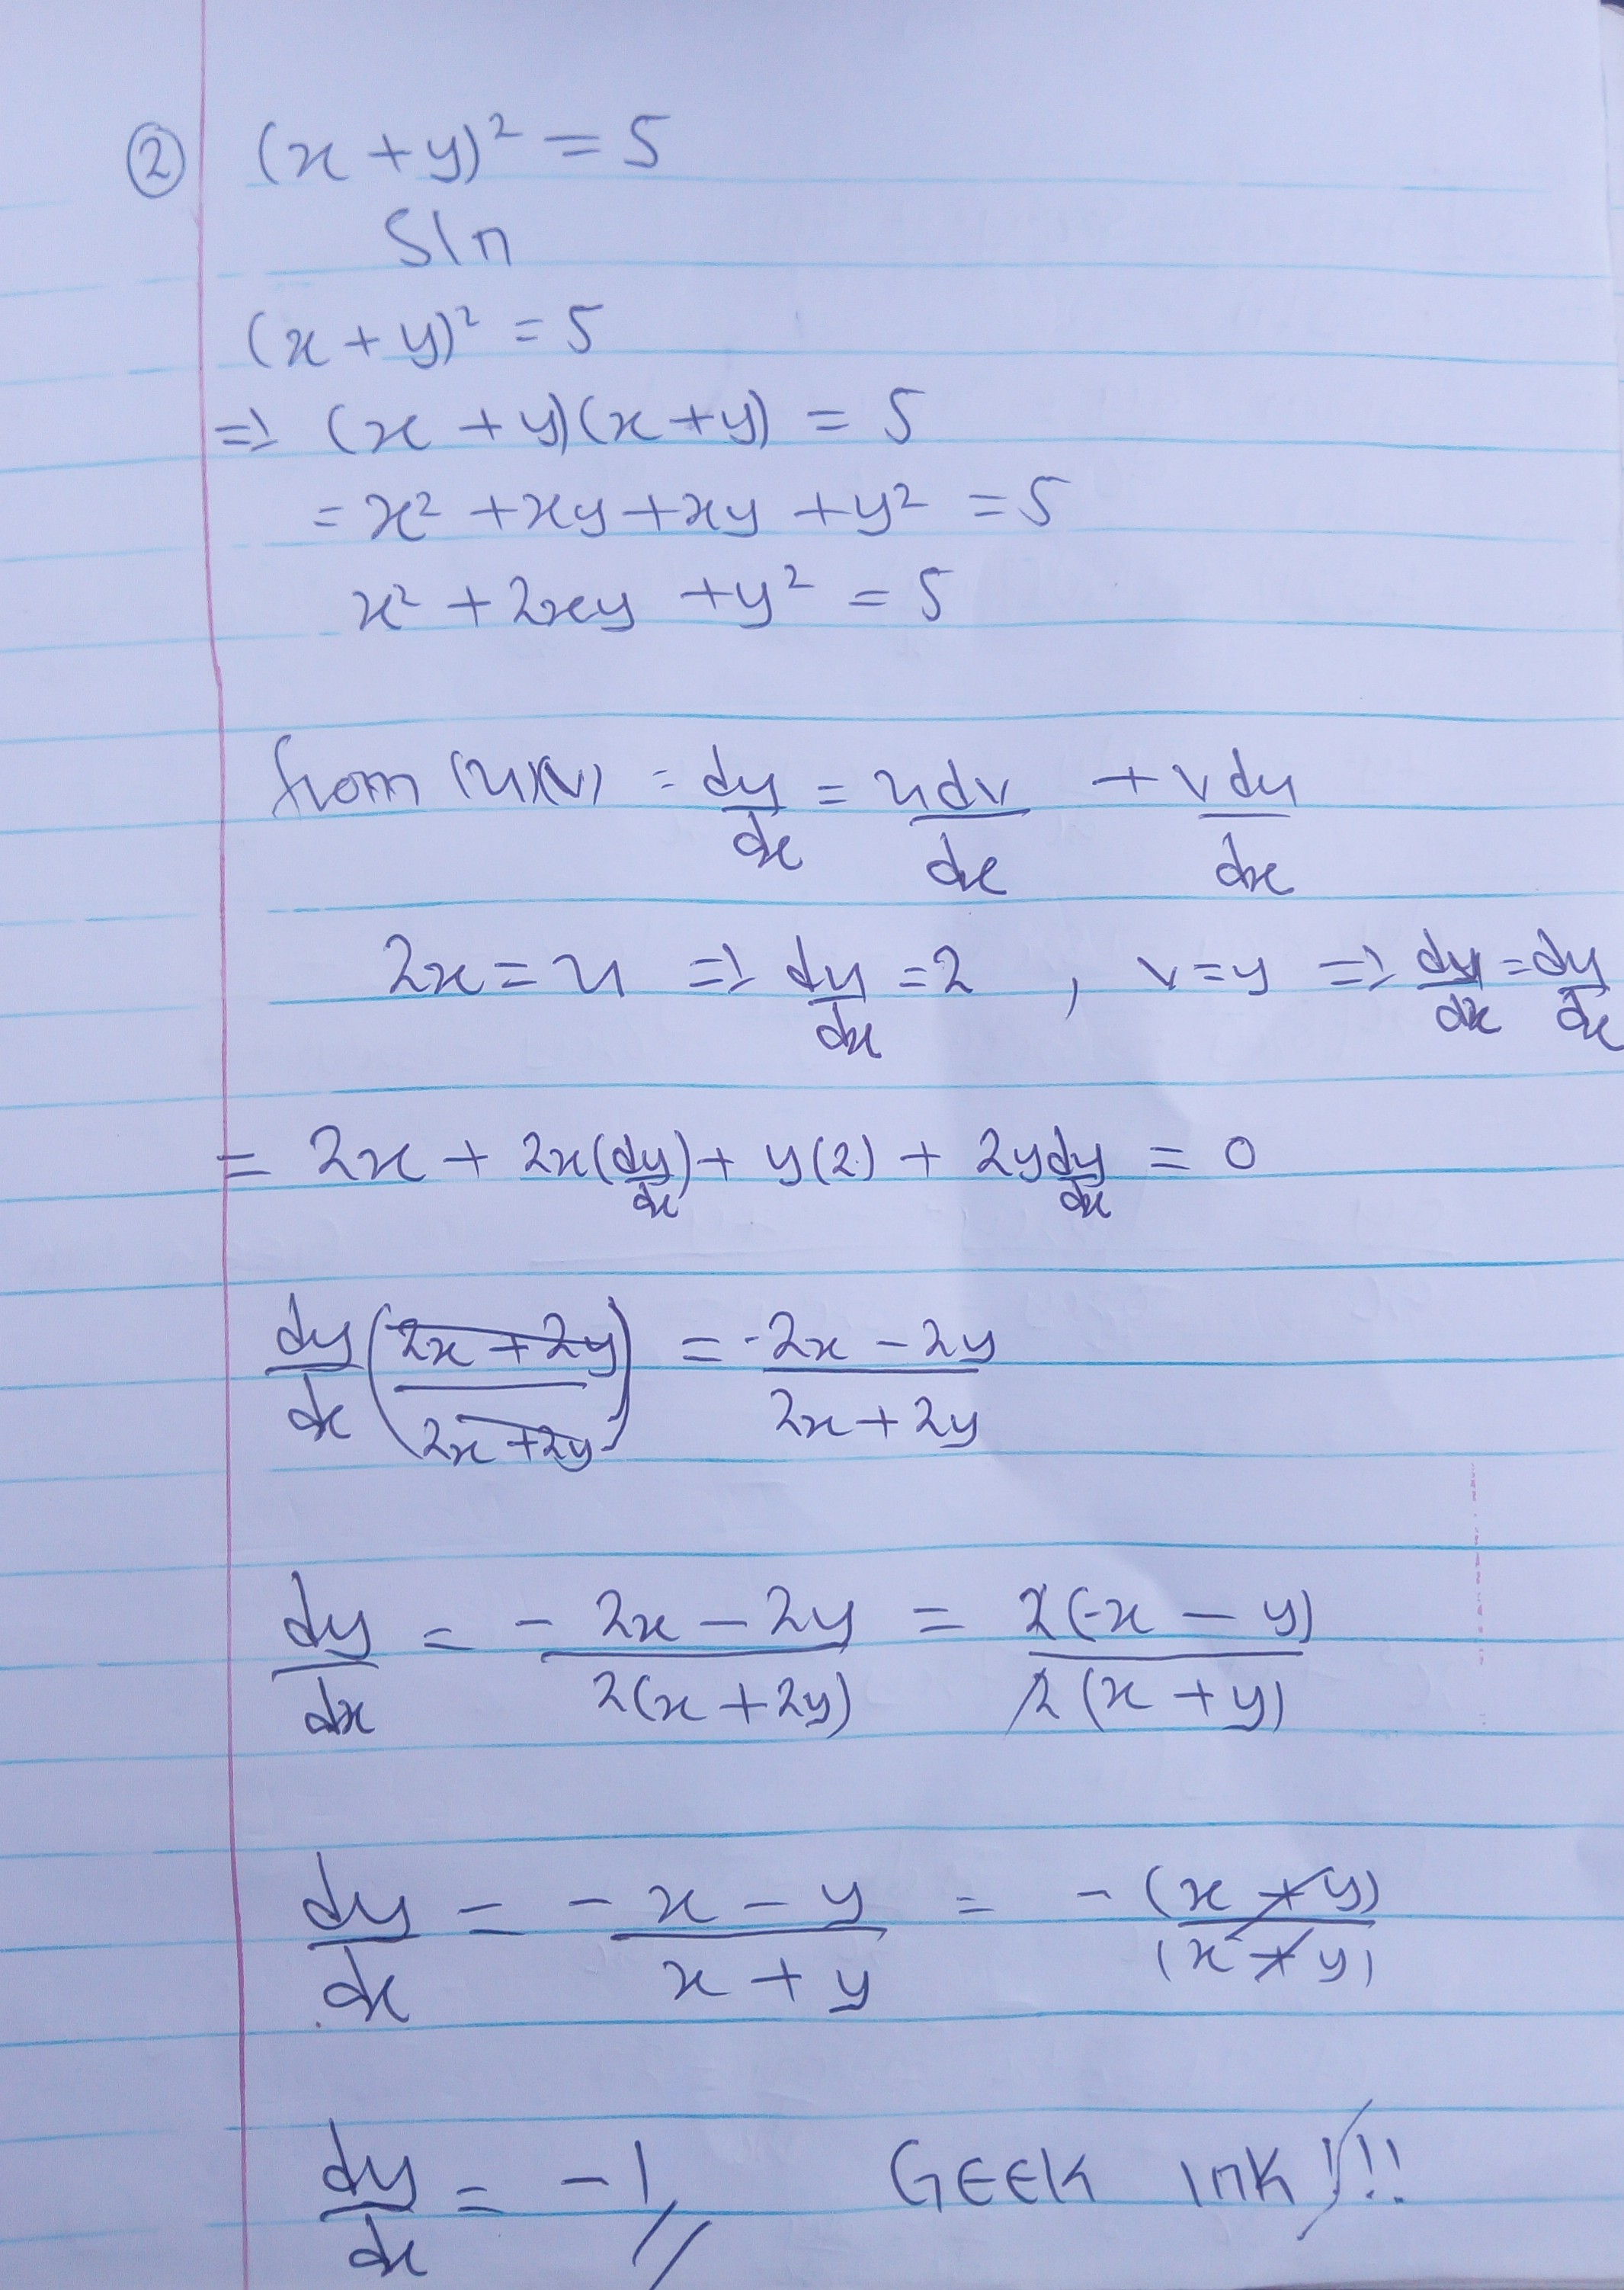 ② (x + y)² = 5
Sln
(x + y)² = 5
⇒ (x + y)(x + y) = 5
= x² + xy + xy + y² = 5
x² + 2xy + y² = 5
from (u)(v) = dy/dx = udv/dx + vdu/dx
2x = u ⇒ du/dx = 2 , v = y ⇒ dy/dx = dy/dx
= 2x + 2x(dy/dx) + y(2) + 2y dy/dx = 0
dy/dx ((2x + 2y)/(2x + 2y)) = (-2x - 2y)/(2x + 2y)
dy/dx = (-2x - 2y)/(2(x + 2y)) = (2(-x - y))/(2(x + y))
dy/dx = (-x - y)/(x + y) = -(x + y)/(x + y)
dy/dx = -1 // GEEK INK!!!